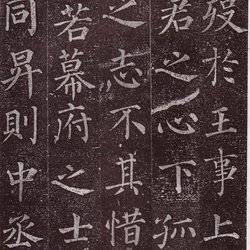 歿於王事上
君之心下孤
之志不其惜
若幕府之士
同昇則中丞